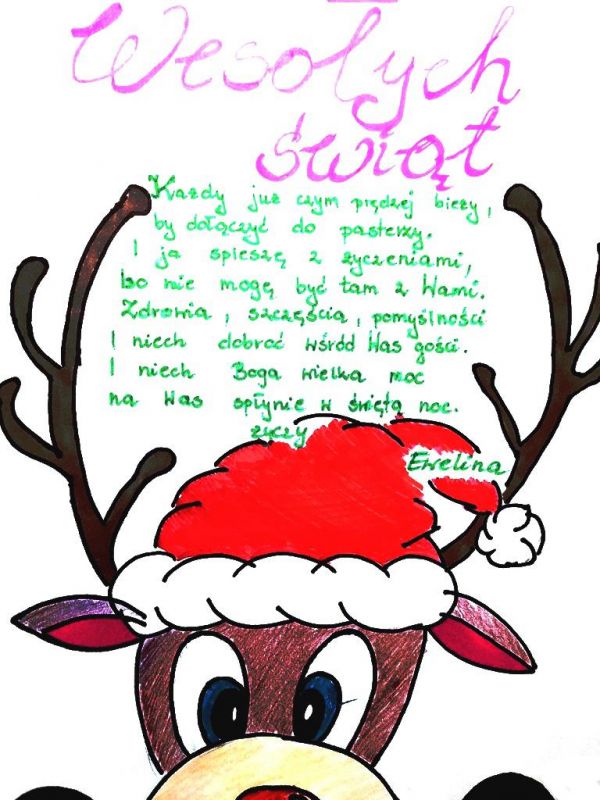 Wesołych
świąt
Każdy już czym prędzej bieży,
by dołączyć do pasterzy.
I ja spieszę z życzeniami,
bo nie mogę być tam z Wami.
Zdrowia, szczęścia, pomyślności
I niech dobroć wśród Was gości.
I niech Boga wielka moc
na Was spłynie w świętą noc.
życzy
Ewelina